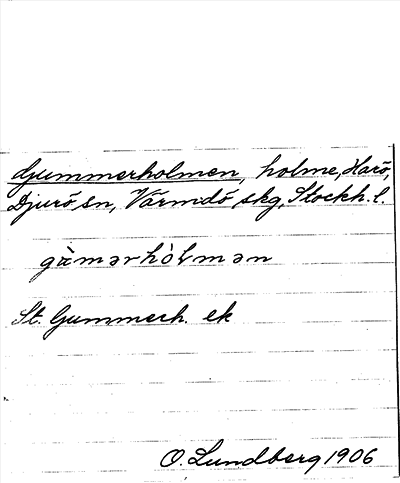 Gummerholmen, holme, Harö,
Djurö sn, Värmdö skg, Stockh. l.
gàmərhòlmən
St. Gummerh. ek
O. Lundberg 1906